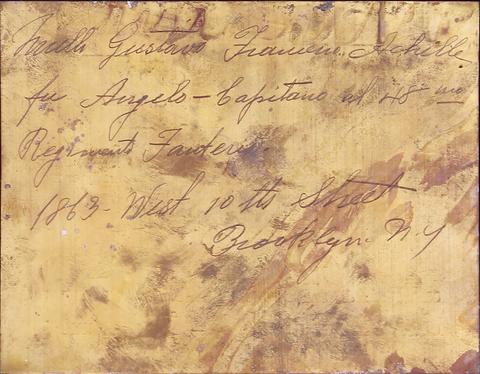 Gustavo Francesco Achille
fu Angelo - Capitano al 48 mo
Regimento Fanteria
1863 - West 10 th Street
Brooklyn. N.Y